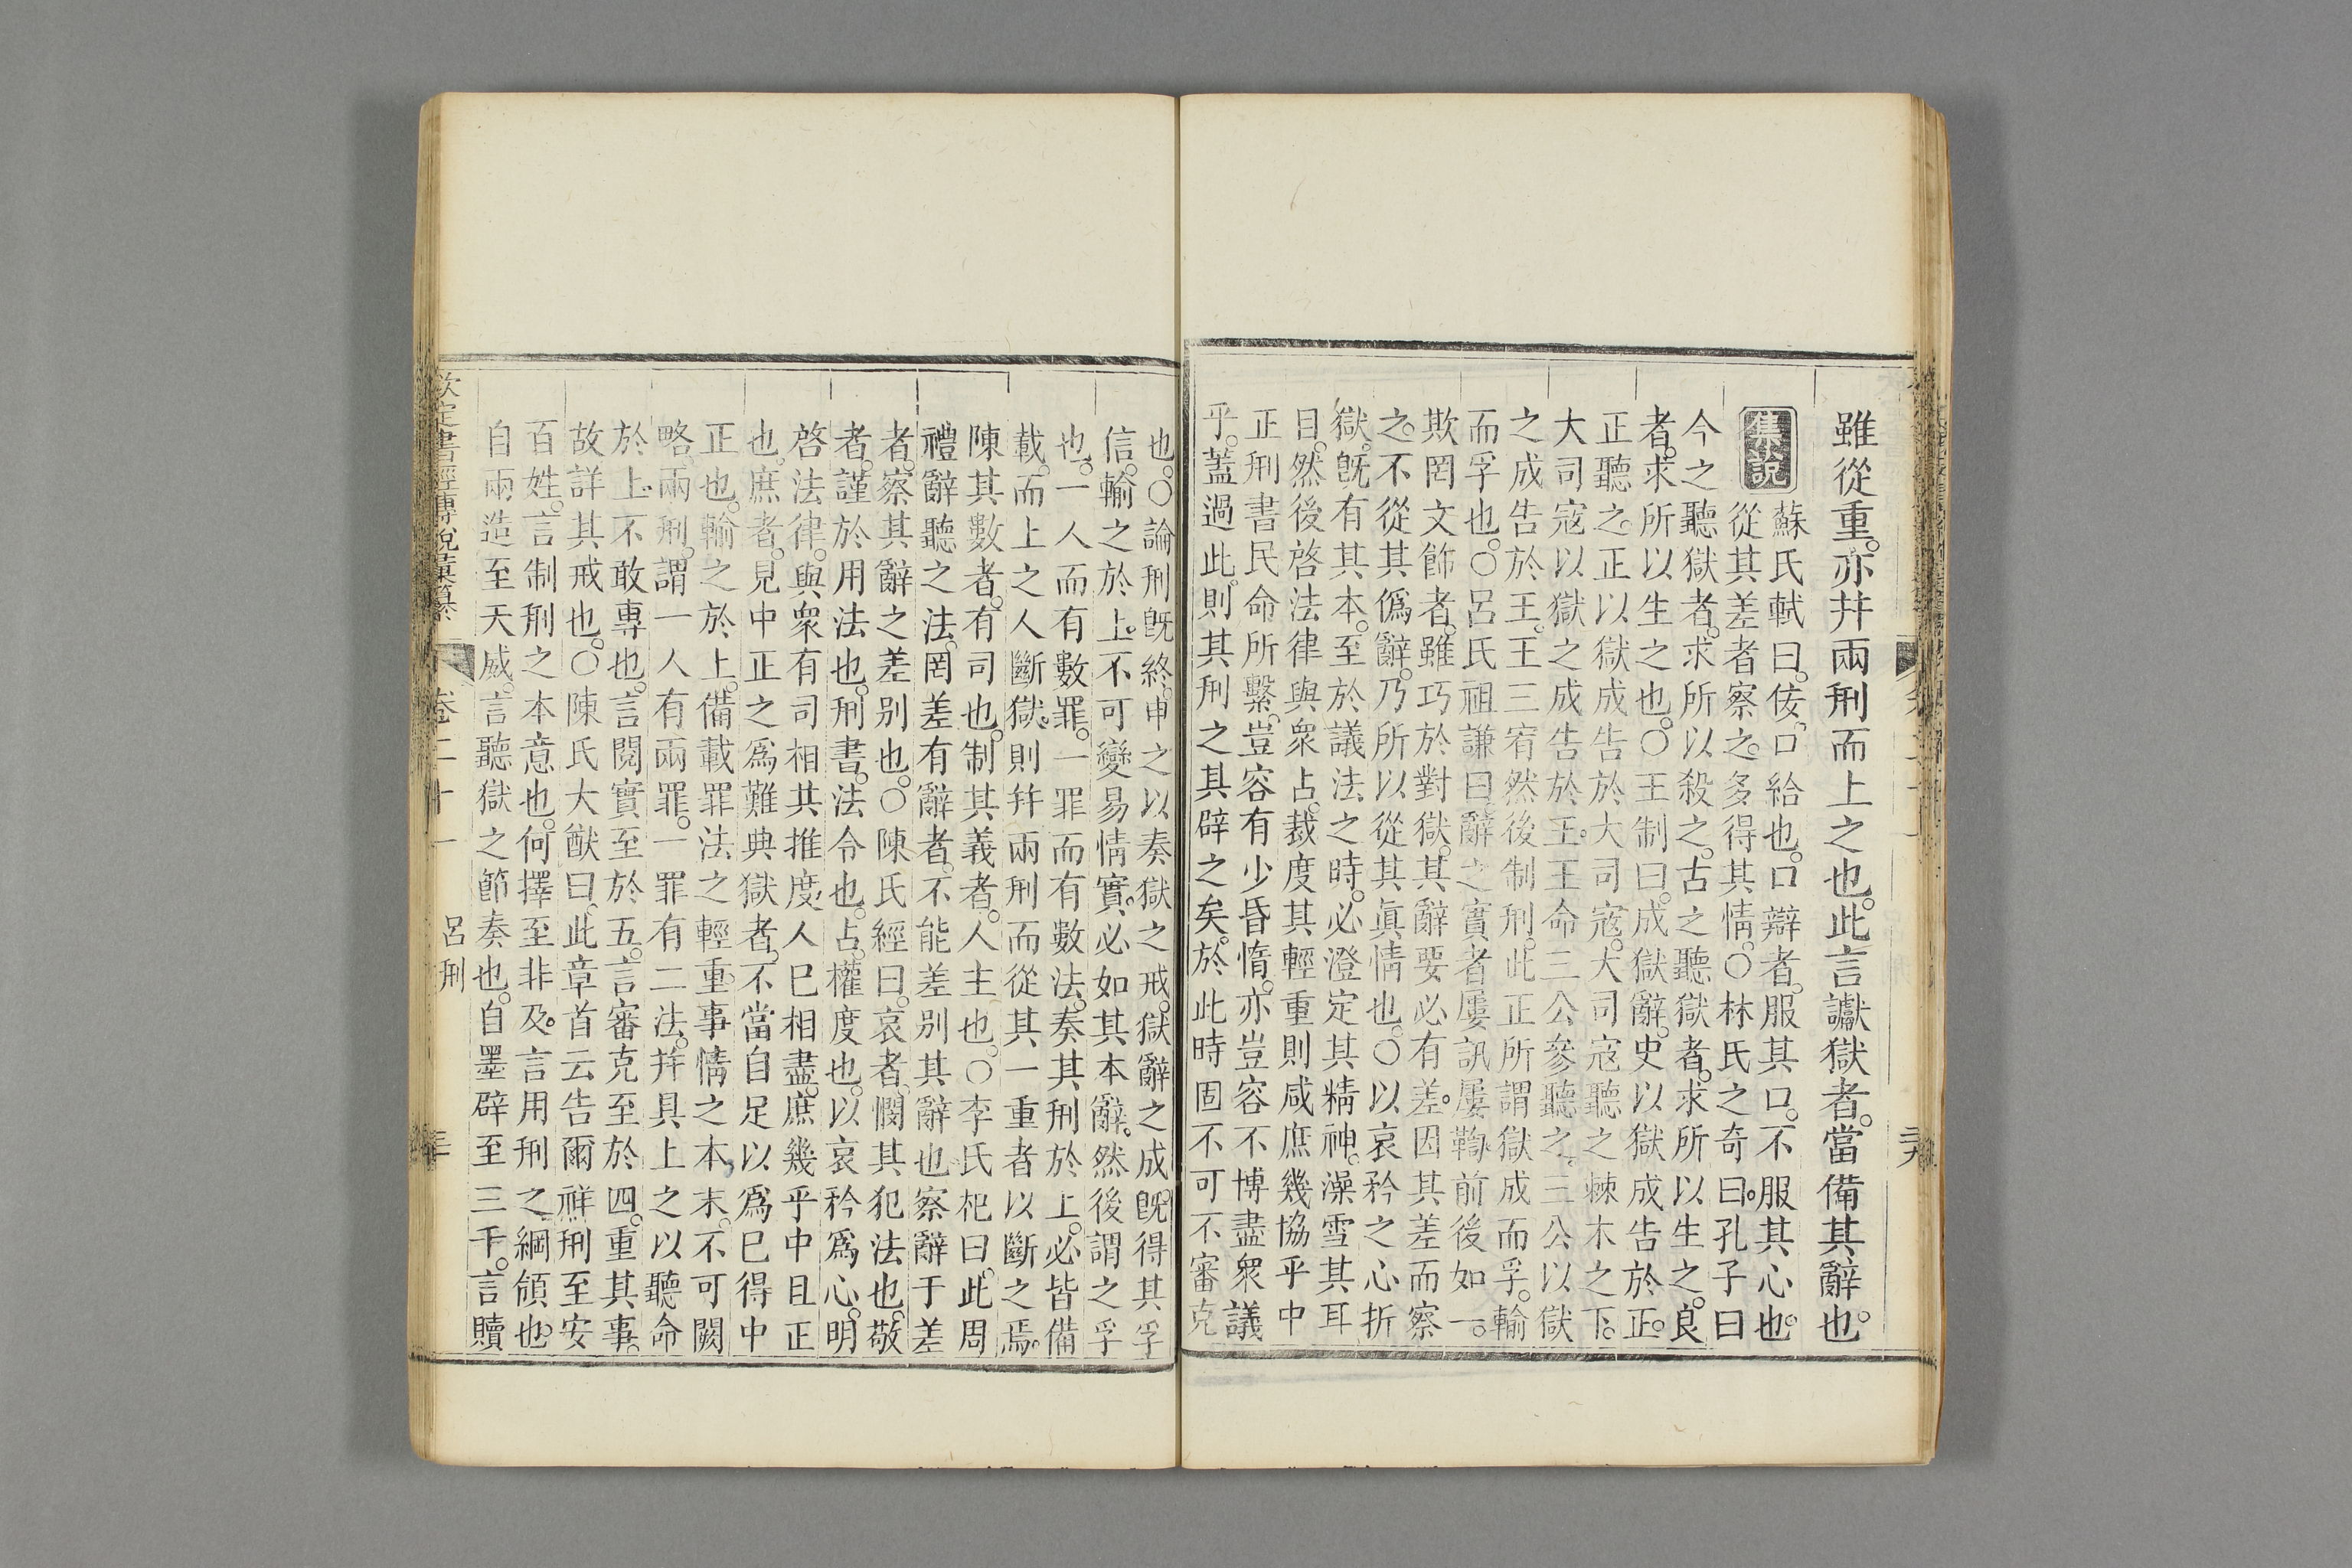 雖從重。亦并兩刑而上之也。此言讞獄者。當備其辭也。
集說
蘇氏軾曰。佞。口給也。口辯者。服其口。不服其心也。
從其差者察之。多得其情。○林氏之奇曰。孔子曰
今之聽獄者。求所以殺之。古之聽獄者。求所以生之。良
者。求所以生之也。○王制曰。成獄辭。史以獄成告於正。
正聽之。正以獄成告於大司寇。大司寇聽之棘木之下。
大司寇以獄之成告於王。王命三公參聽之。三公以獄
之成告於王。王三宥然後制刑。此正所謂獄成而孚。輸
而孚也。○呂氏祖謙曰。辭之實者。屢訊屢鞫。前後如一。
欺罔文飾者。雖巧於對獄。其辭要必有差。因其差而察
之。不從其僞辭。乃所以從其眞情也。○以哀矜之心折
獄。旣有其本。至於議法之時。必澄定其精神。澡雪其耳
目。然後啓法律與眾占。裁度其輕重。則咸庶幾協乎中
正。刑書民命所繫。豈容有少昏惰。亦豈容不博盡眾議
乎。蓋過此。則其刑之其辟之矣。於此時固不可不審克
也。○論刑旣終。申之以奏獄之戒。獄辭之成。旣得其孚
信。輸之於上。不可變易情實。必如其本辭。然後謂之孚
也。一人而有數罪。一罪而有數法。奏其刑於上。必皆備
載。而上之人斷獄。則幷兩刑而從其一重者以斷之焉。
陳其數者。有司也。制其義者。人主也。○李氏杞曰。此周
禮辭聽之法。罔差有辭者。不能差別其辭也。察辭于差
者。察其辭之差别也。○陳氏經曰。哀者憫其犯法也。敬
者。謹於用法也。刑書。法令也。占。權度也。以哀矜爲心。明
啓法律。與眾有司相共推度。人已相盡。庶幾乎中且正
也。庶者。見中正之爲難。典獄者。不當自足以爲已得中
正也。輸之於上。備載罪法之輕重。事情之本末。不可闕
略。兩刑。謂一人有兩罪。一罪有二法。幷具上之以聽命
於上。不敢專也。言閱實至於五。言審克至於四。重其事。
故詳其戒也。○陳氏大猷曰。此章首云告爾祥刑至安
百姓。言制刑之本意也。何擇至非及。言用刑之綱領也。
自兩造至天威。言聽獄之節奏也。自墨辟至三千。言贖
欽定書經傳說彙纂 卷二十一 呂刑 三十